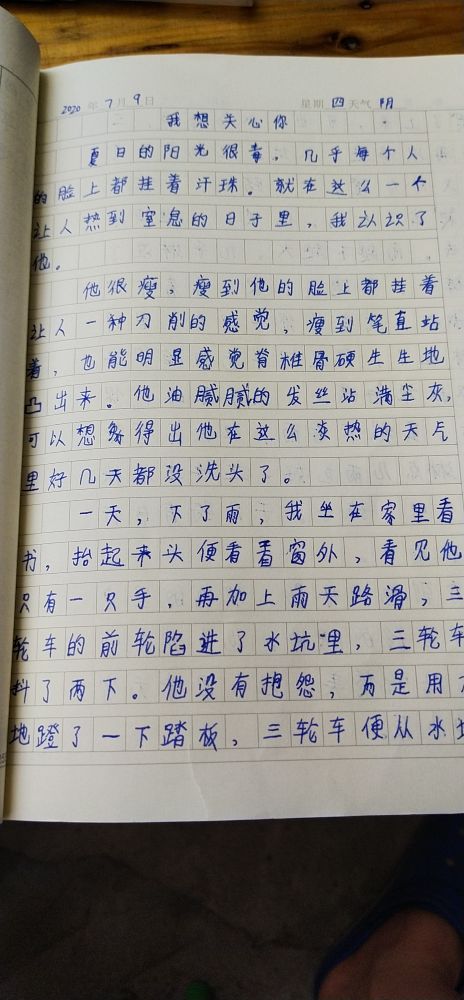 2020 年 7 月 9 日 星期 四 天气 阴
我想关心你
夏日的阳光很毒，几乎每个人
的脸上都挂着汗珠。就在这么一个
让人热到窒息的日子里，我认识了
他。
他很瘦，瘦到他的脸上都挂着
让人一种刀削的感觉，瘦到笔直站
着，也能明显感觉脊椎骨硬生生地
凸出来。他油腻腻的发丝沾满尘灰，
可以想象得出他在这么炎热的天气
里好几天都没洗头了。
一天，下了雨，我坐在家里看
书，抬起来头便看着窗外，看见他
只有一只手，再加上雨天路滑，三
轮车的前轮陷进了水坑里，三轮车
抖了两下。他没有抱怨，而是用力
地蹬了一下踏板，三轮车便从水坑